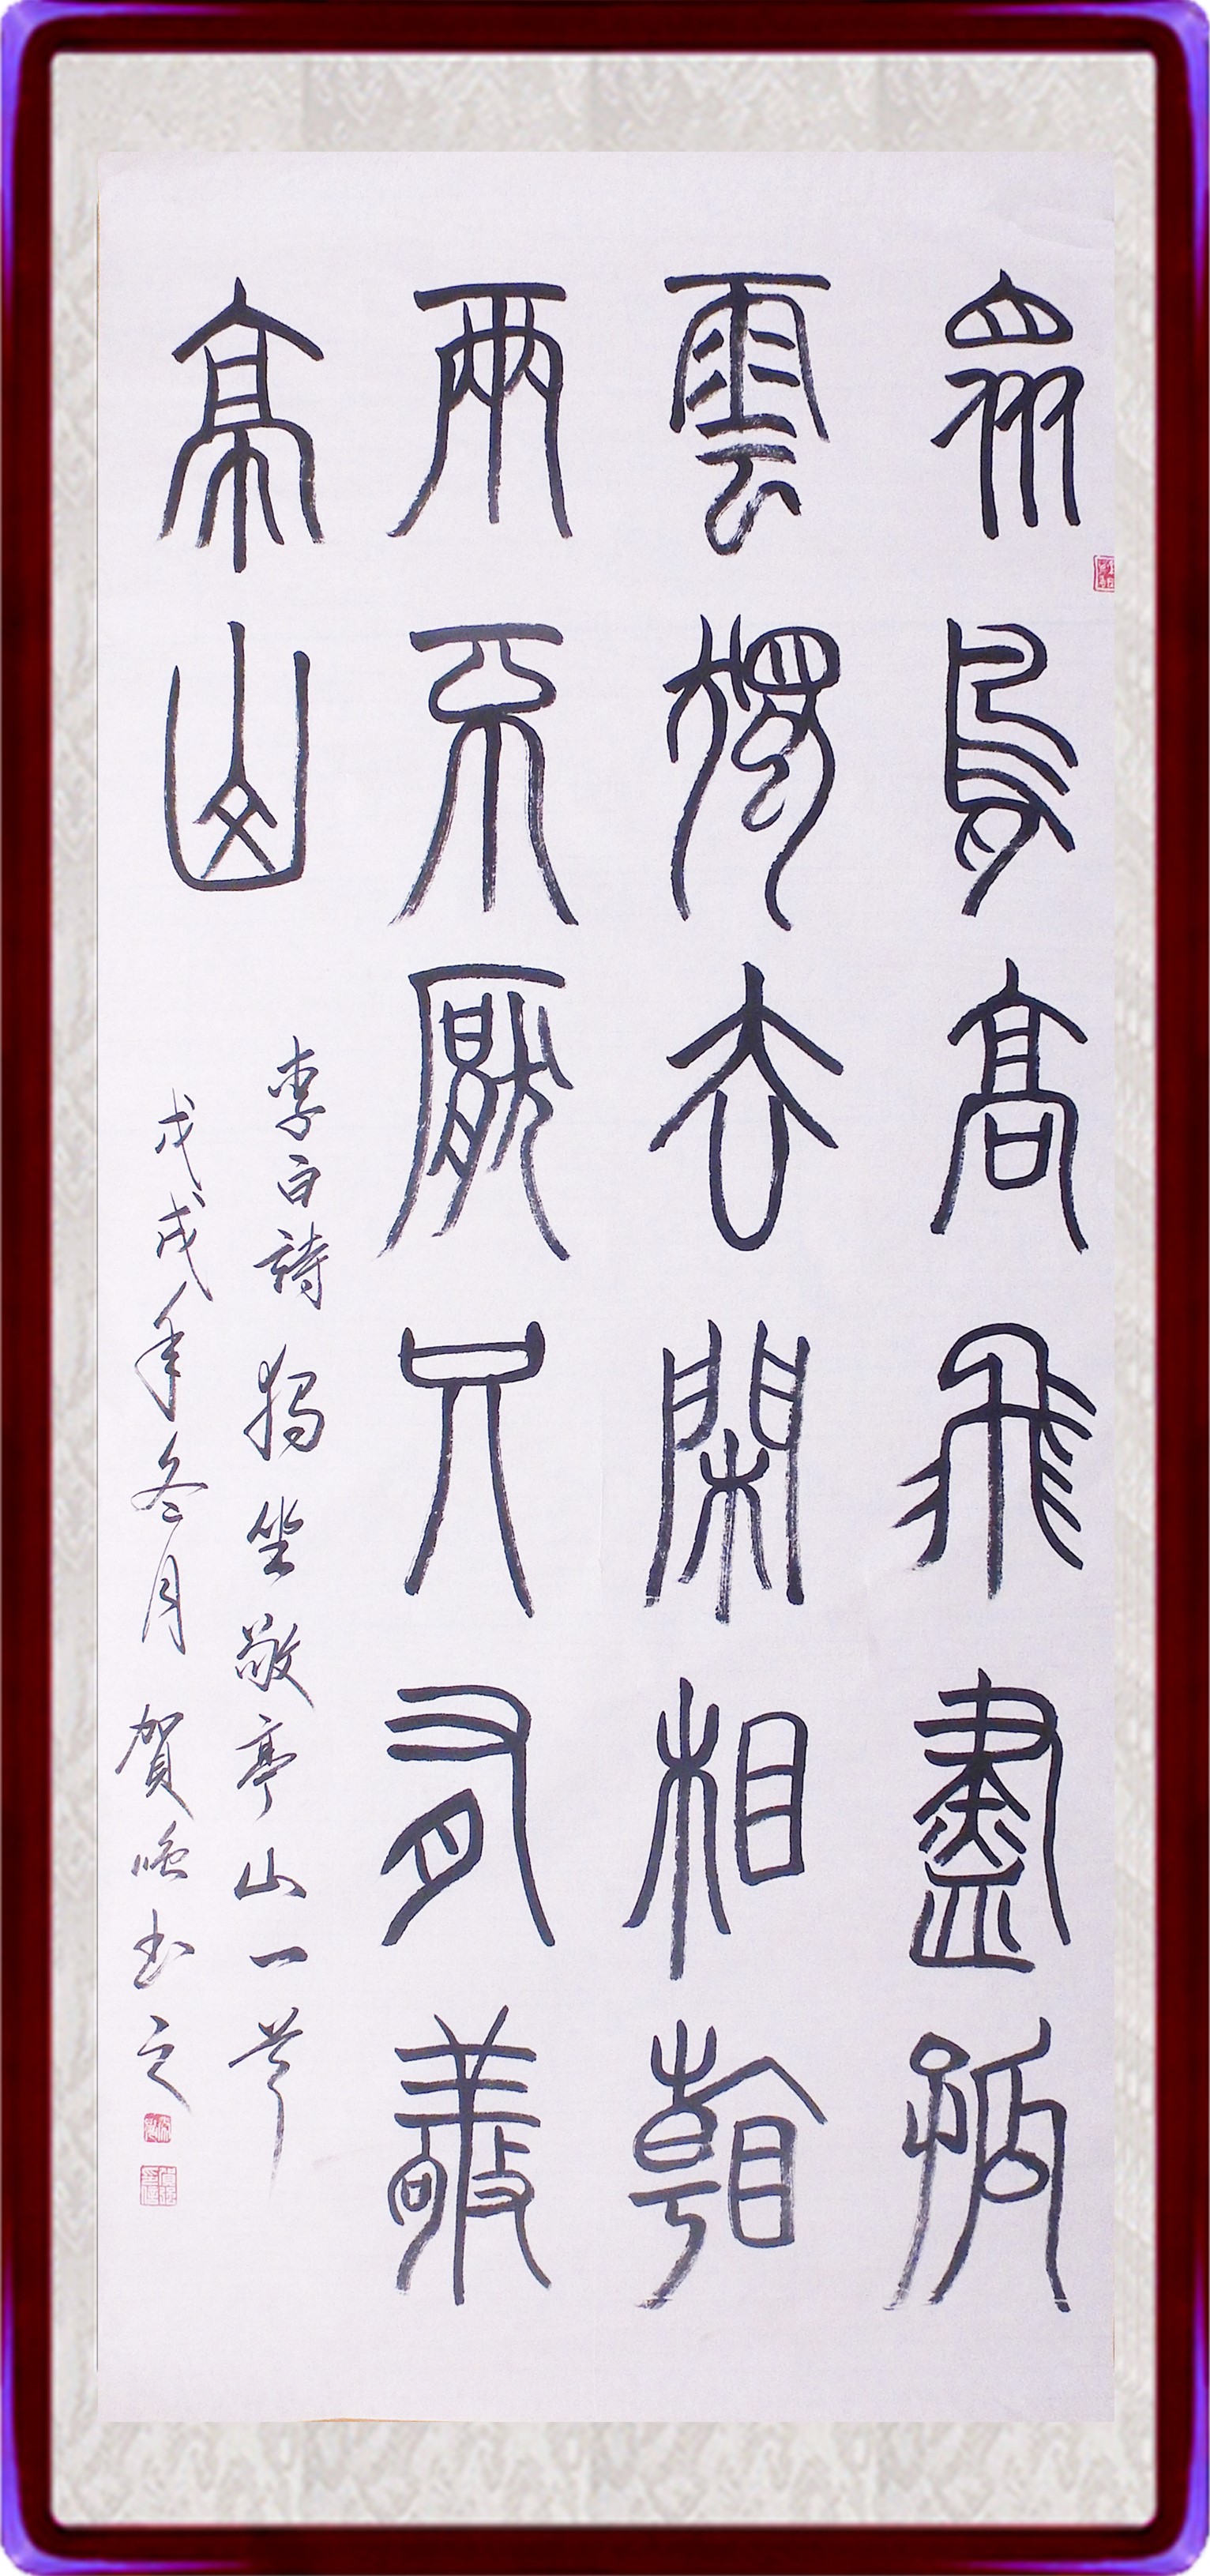 衆鳥高飛盡孤
雲獨去閑相看
兩不厭只有敬
亭山
李白詩獨坐敬亭山一首
戊戌年冬月賀喚書之